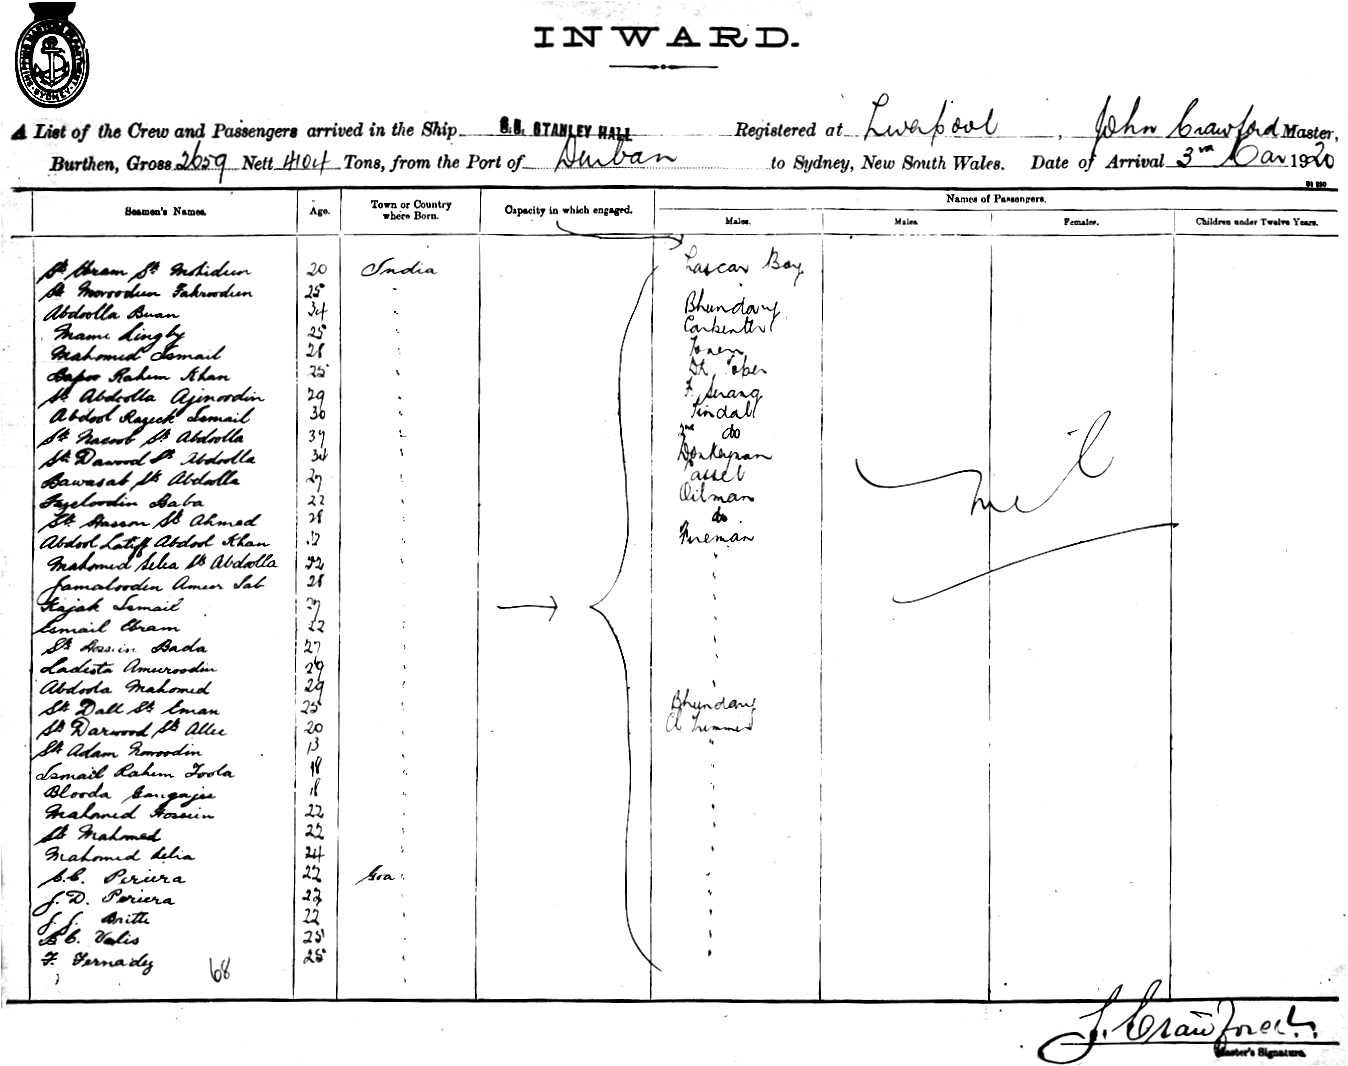 INWARD.
A List of the Crew and Passengers arrived in the Ship S.S. STANLEY HALL Registered at Liverpool, John Crawford Master,
Burthen, Gross 2659 Nett 4104 Tons, from the Port of Durban to Sydney, New South Wales. Date of Arrival 3rd Mar 1920
Seamen's Names. Age. Town or Country where Born. Capacity in which engaged. Names of Passengers.
Males. Males. Females. Children under Twelve Years.
Sk Ebram Sk Mohidun 20 India Lascar Boy
Sk Moroodun Fakroodun 25 "
Abdoolla Buan 34 " Bhundary
Mami Lingby 25 " Carpenter
Mahomed Ismail 28 "
Bapoo Rahem Khan 25 "
Sk Abdoolla Ajinoodin 29 " F. Serang
Abdool Razeck Ismail 36 " Tindal
Sk Nacoob Sk Abdoolla 37 " 2nd do
Sk Dawood Sk Abdoolla 34 " Donkeyman
Bawasab Sk Abdolla 27 " Cassel
Fazeloodin Baba 22 " Oilman
Sk Hasson Sk Ahmed 28 " do
Abdool Latiff Abdool Khan 32 " Fireman
Mahomed Selia Sk Abdoolla 32 " "
Jamaloodin Ameer Sab 28 " "
Kajak Ismail 27 " "
Esmail Ebram 22 " "
Sk Hossein Bada 27 " "
Ladista Ameeroodin 29 " "
Abdoola Mahomed 29 " "
Sk Dall Sk Eman 25 " Bhundary
Sk Darwood Sk Allee 20 " C. Trimmer
Sk Adam Noroodin 13 " "
Ismail Rahem Toola 18 " "
Blooda Gangajee 18 " "
Mahomed Hossein 22 " "
Sk Mahomed 22 " "
Mahomed Selia 24 " "
C.C. Periera 22 Goa "
J.D. Periera 22 " "
J.J. Britte 22 " "
B.C. Valis 25 " "
F. Fernadez 25 " "
68
Nil
J. Crawford
Master's Signature.